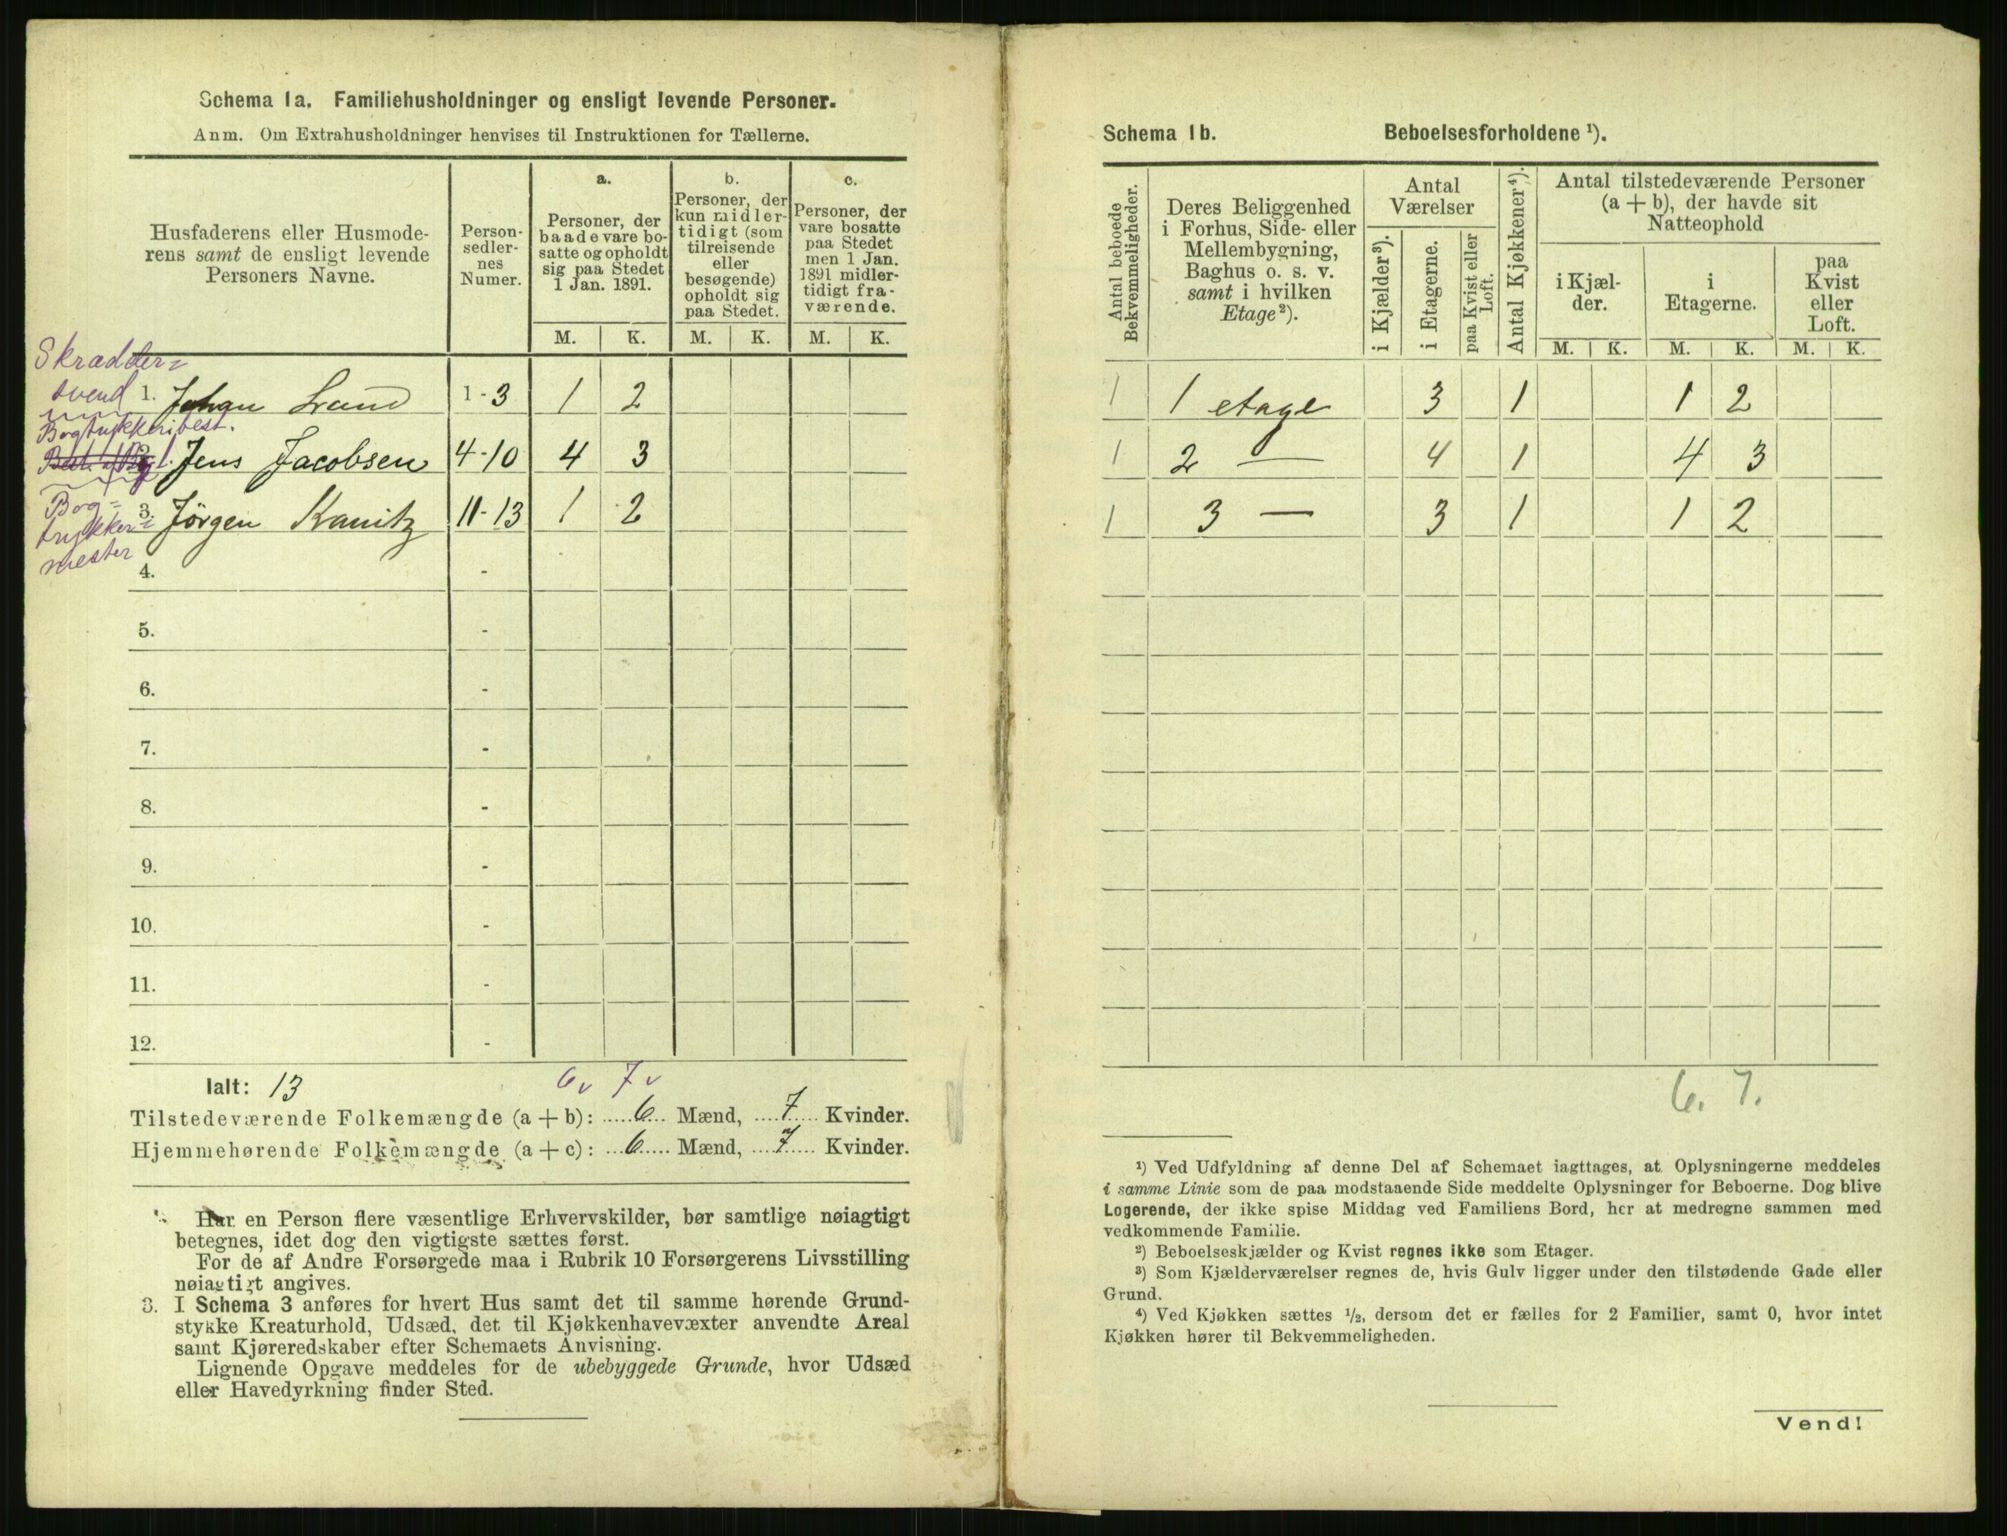 Schema 1a. Familiehusholdninger og ensligt levende Personer.
Anm. Om Extrahusholdninger henvises til Instruktionen for Tællerne.
Husfaderens eller Husmode-
rens samt de ensligt levende
Personers Navne.
Person-
sedler-
nes
Numer.
a.
Personer, der
baade vare bo-
satte og opholdt
sig paa Stedet
1 Jan. 1891.
b.
Personer, der
kun midler-
tidigt (som
tilreisende
eller
besøgende)
opholdt sig
paa Stedet.
c.
Personer, der
vare bosatte
paa Stedet
men 1 Jan.
1891 midler-
tidigt fra-
værende.
M. K. M. K. M. K.
Skrædder=
svend
1. Johan Lund 1-3 1 2
Bogtrykkeribest.
Jens Jacobsen 4-10 4 3
Bog=
trykker=
mester
3. Jörgen Kanitz 11-13 1 2
4. -
5. -
6. -
7. -
8. -
9. -
10. -
11. -
12. -
Ialt: 13 6v 7v
Tilstedeværende Folkemængde (a + b): 6 Mænd, 7 Kvinder.
Hjemmehørende Folkemængde (a + c): 6 Mænd, 7 Kvinder.
Har en Person flere væsentlige Erhvervskilder, bør samtlige nøiagtigt
betegnes, idet dog den vigtigste sættes først.
For de af Andre Forsørgede maa i Rubrik 10 Forsørgerens Livsstilling
nøiagtigt angives.
3. I Schema 3 anføres for hvert Hus samt det til samme hørende Grund-
stykke Kreaturhold, Udsæd, det til Kjøkkenhavevæxter anvendte Areal
samt Kjøreredskaber efter Schemaets Anvisning.
Lignende Opgave meddeles for de ubebyggede Grunde, hvor Udsæd
eller Havedyrkning finder Sted.
Schema 1b. Beboelsesforholdene ¹).
Antal beboede
Bekvemmeligheder.
Deres Beliggenhed
i Forhus, Side- eller
Mellembygning,
Baghus o. s. v.
samt i hvilken
Etage²).
Antal
Værelser
i Kjælder³).
i Etagerne.
paa Kvist eller
Loft.
Antal Kjøkkener⁴).
Antal tilstedeværende Personer
(a + b), der havde sit
Natteophold
i Kjæl-
der.
i
Etagerne.
paa
Kvist
eller
Loft.
M. K. M. K. M. K.
1 1 etage 3 1 1 2
1 2 — 4 1 4 3
1 3 — 3 1 1 2
6. 7.
¹) Ved Udfyldning af denne Del af Schemaet iagttages, at Oplysningerne meddeles
i samme Linie som de paa modstaaende Side meddelte Oplysninger for Beboerne. Dog blive
Logerende, der ikke spise Middag ved Familiens Bord, her at medregne sammen med
vedkommende Familie.
²) Beboelseskjælder og Kvist regnes ikke som Etager.
³) Som Kjælderværelser regnes de, hvis Gulv ligger under den tilstødende Gade eller
Grund.
⁴) Ved Kjøkken sættes ½, dersom det er fælles for 2 Familier, samt 0, hvor intet
Kjøkken hører til Bekvemmeligheden.
Vend!